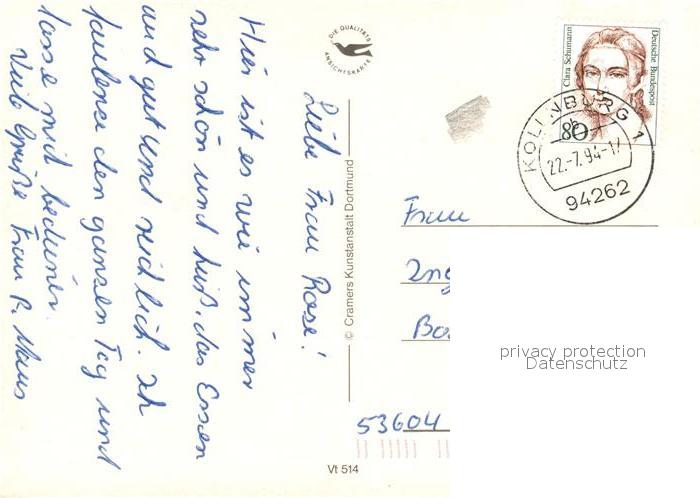 Liebe Frau Rose!
Hier ist es wie immer
sehr schön und heiß, das Essen
und gut und reichlich. Ich
faulence den ganzen Tag und
lasse mich bedienen.
Viele Grüße Frau P. Maus
DIE QUALITÄTS
ANSICHTSKARTE
© Cramers Kunstanstalt Dortmund
Vt 514
Clara Schumann
Deutsche Bundespost
80
KOLLNBURG 1
22.-7.94-17
94262
Frau
Ing
53604
privacy protection
Datenschutz